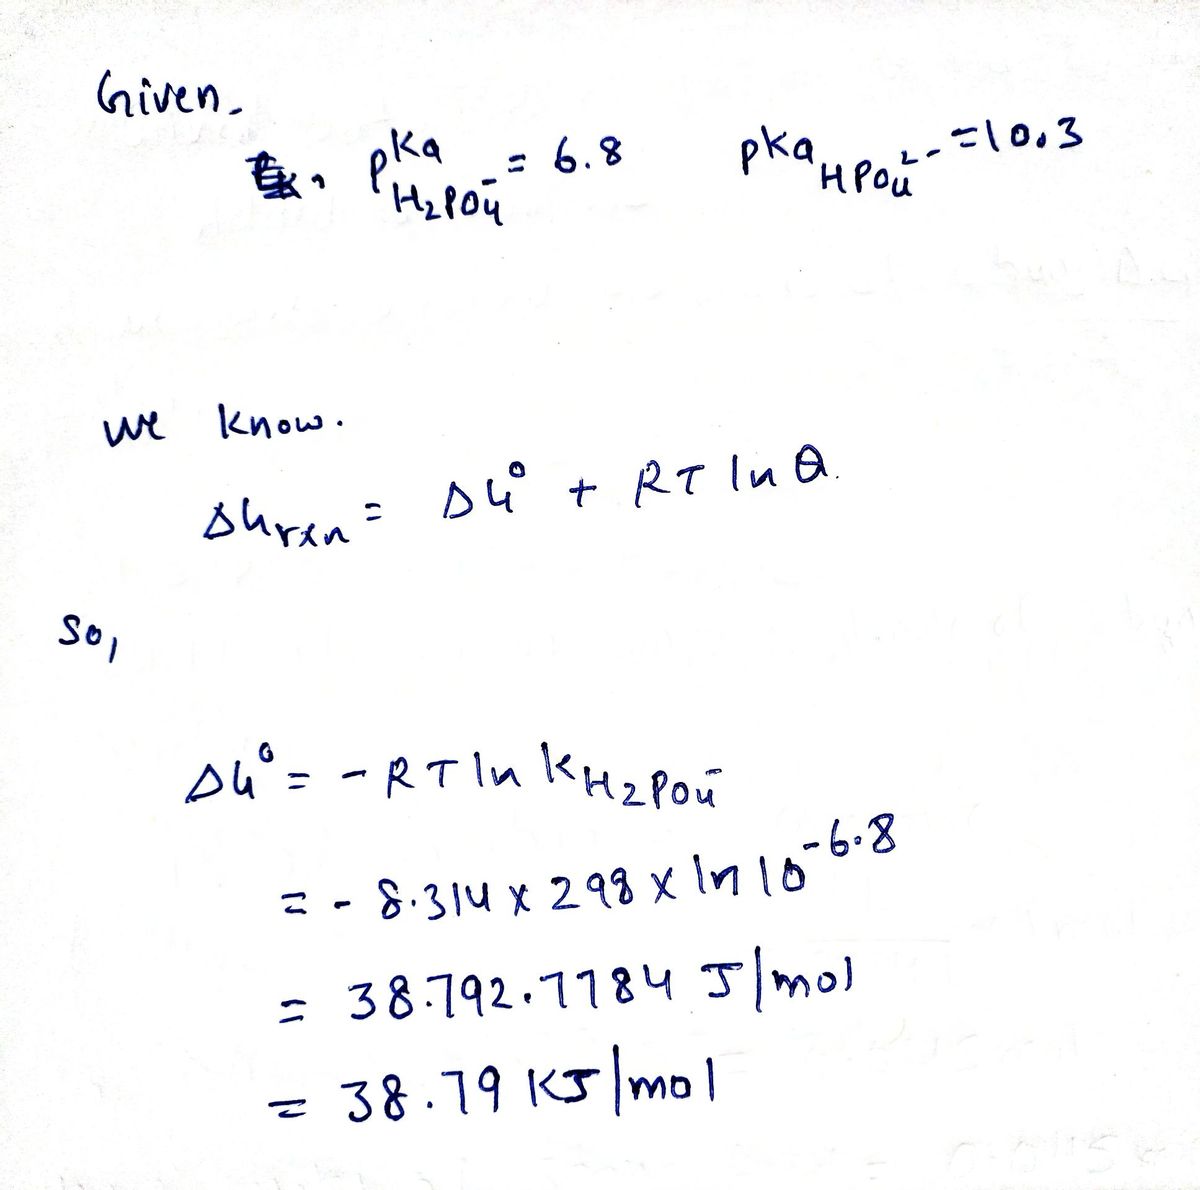 Given -
, pKa H₂PO₄⁻ = 6.8 pka HPO₄²⁻ = 10.3
we know.
ΔGrxn = ΔG° + RT ln Q.
So,
ΔG° = - RT ln K H₂PO₄⁻
= - 8.314 x 298 x ln 10^-6.8
= 38.792.7784 J/mol
= 38.79 KJ/mol